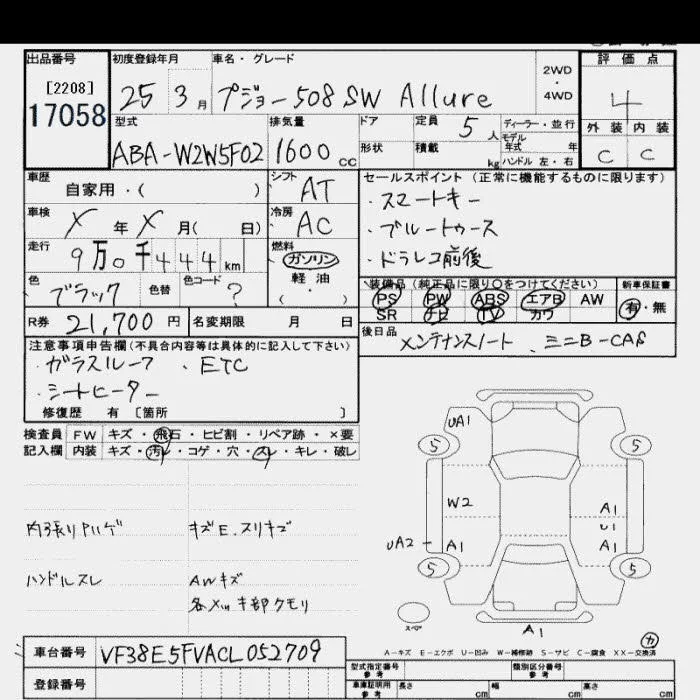 出品番号 初度登録年月 車名・グレード 2WD・4WD 評価点
[2208]
17058
25 3月 プジョー508 SW Allure 4
型式 排気量 ドア 定員 5人 ディーラー・並行 外装 内装
ABA-W2W5F02 1600cc 形状 積載 kg モデル年式 年 ハンドル 左・右 C C
車歴 自家用・( ) シフト AT
セールスポイント (正常に機能するものに限ります)
・スマートキー
・ブルートゥース
・ドラレコ前後
車検 X年X月( 日) 冷房 AC
走行 9万0千444km 燃料 ガソリン 軽油 ( )
色 ブラック 色替 色コード ?
装備品(純正品に限り〇をつけてください) 新車保証書
PS PW ABS エアB AW 有・無
SR ナビ TV カワ
R券 21,700円 名変期限 月 日
後日品 メンテナンスノート、ミニB-CAS
注意事項申告欄(不具合内容等は具体的に記入して下さい)
・ガラスルーフ ・ETC
・シートヒーター
修復歴 有 [箇所 ]
検査員 FW キズ・飛石・ヒビ割・リペア跡・×要
記入欄 内装 キズ・汚レ・コゲ・穴・スレ・キレ・破レ
内張りハゲ キズE.スリキズ
ハンドルスレ AWキズ
各メッキ部クモリ
UA1
5 5
W2 A1
U1
UA2 A1 A1
5 5
スペア
A1
A-キズ E-エクボ U-凹み W-補修跡 S-サビ C-腐食 XX-交換済
カ
車台番号 VF38E5FVACL052709
型式指定番号 参考 類別区分番号 参考
登録番号
車庫証明用 参考 長さ cm 幅 cm 高さ cm